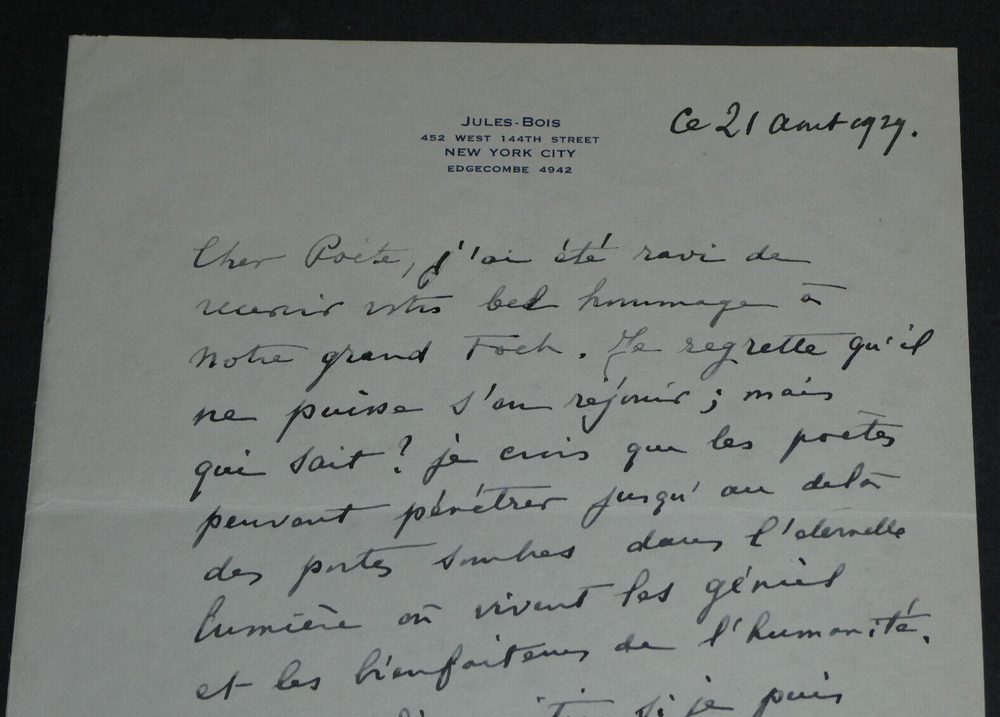 JULES-BOIS
452 WEST 144TH STREET
NEW YORK CITY
EDGECOMBE 4942
Ce 21 Aout 1929.
Cher Poète, j'ai été ravi de
recevoir votre bel hommage à
notre grand Foch. Je regrette qu'il
ne puisse s'en réjouir ; mais
qui sait ? je crois que les poètes
peuvent pénétrer jusqu'au delà
des portes sombres dans l'éternelle
lumière où vivent les génies
et les bienfaiteurs de l'humanité.
si je puis